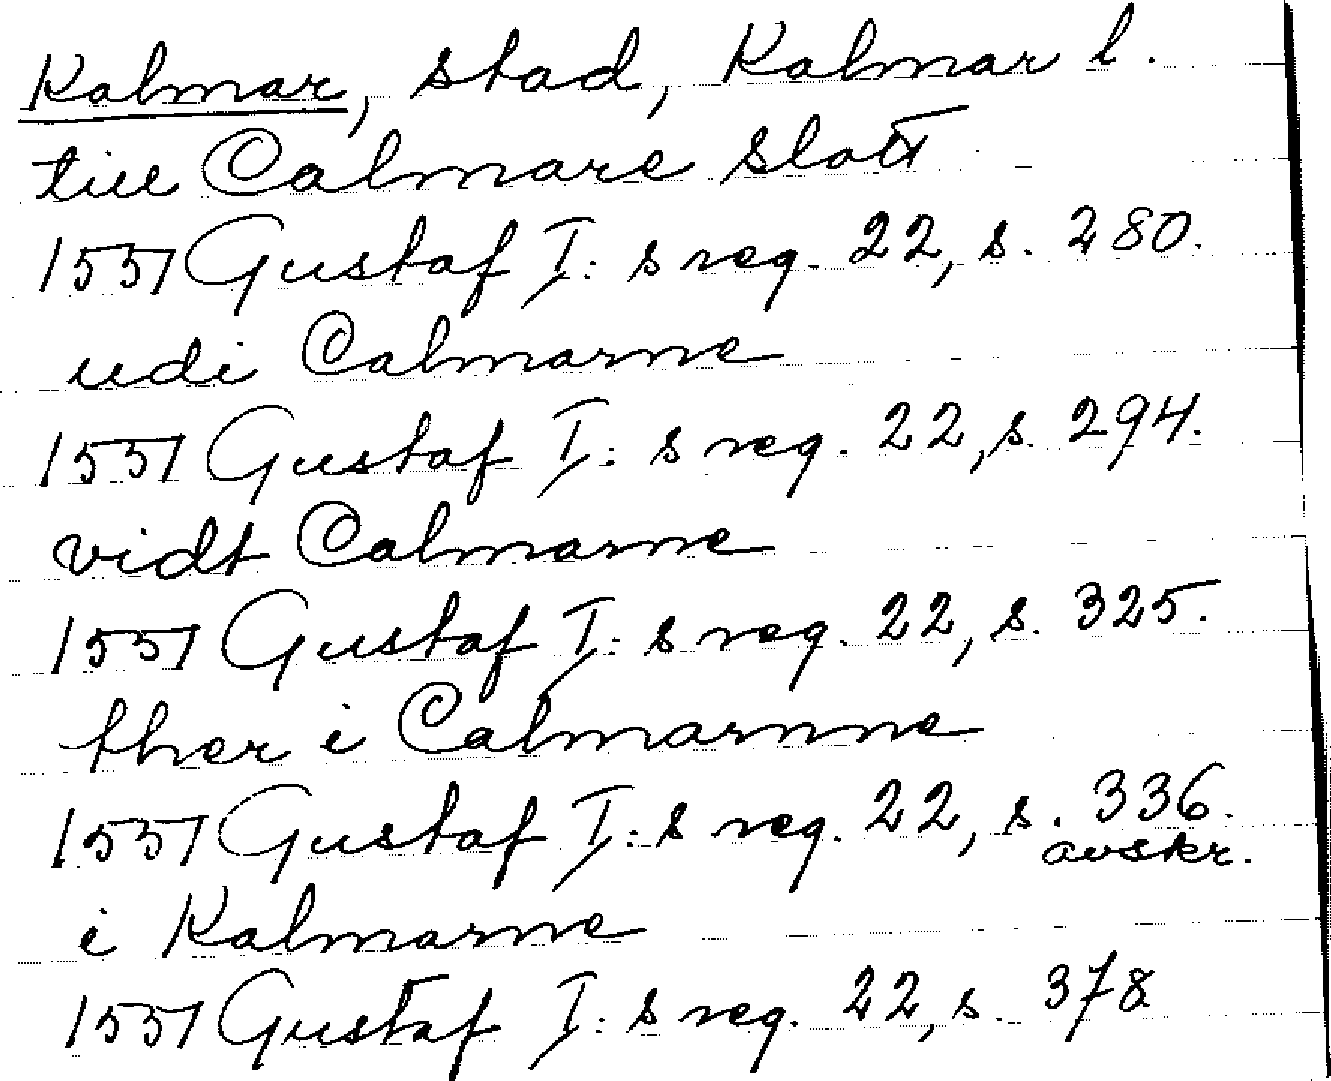 Kalmar, stad, Kalmar l.
till Calmare slott
1551 Gustaf I: s reg. 22, s. 280.
udi Calmarne
1551 Gustaf I: s reg. 22, s. 294.
vidt Calmarne
1551 Gustaf I: s reg. 22, s. 325.
ther i Calmarnne
1551 Gustaf I: s reg. 22, s. 336.
avskr.
i Kalmarne
1551 Gustaf I: s reg. 22, s. 378